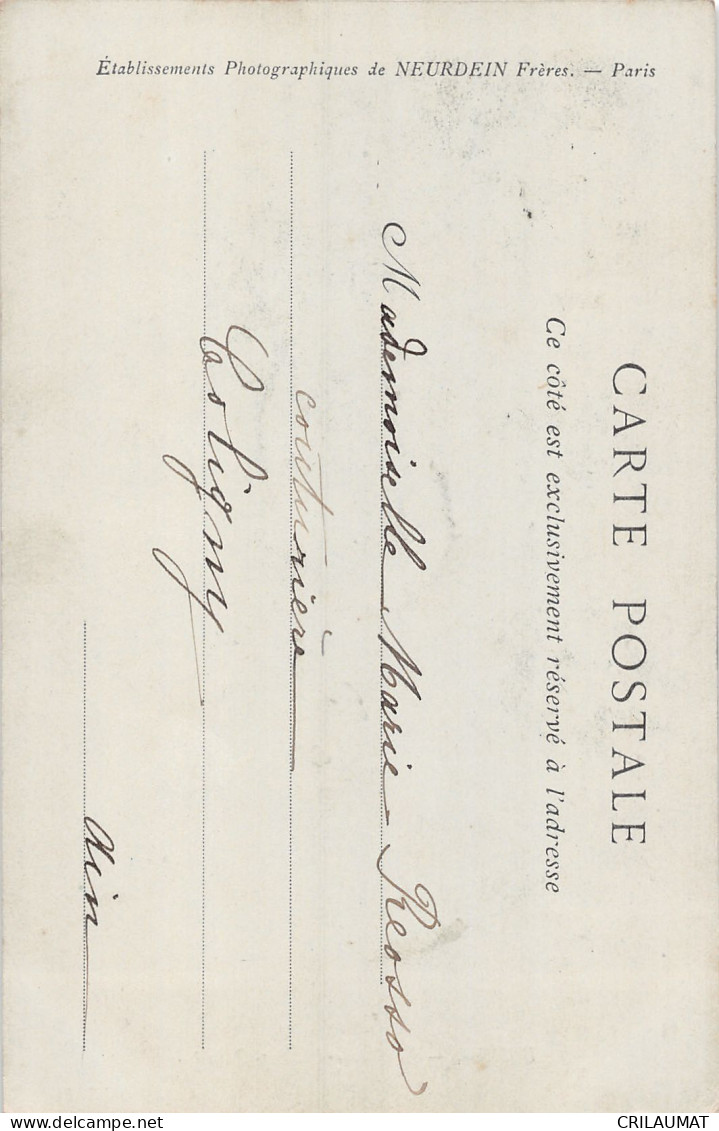 Établissements Photographiques de NEURDEIN Frères. — Paris
CARTE POSTALE
Ce côté est exclusivement réservé à l'adresse
Mademoiselle Marie Reosso
couturière
Coligny
Ain
delcampe.net
CRILAUMAT